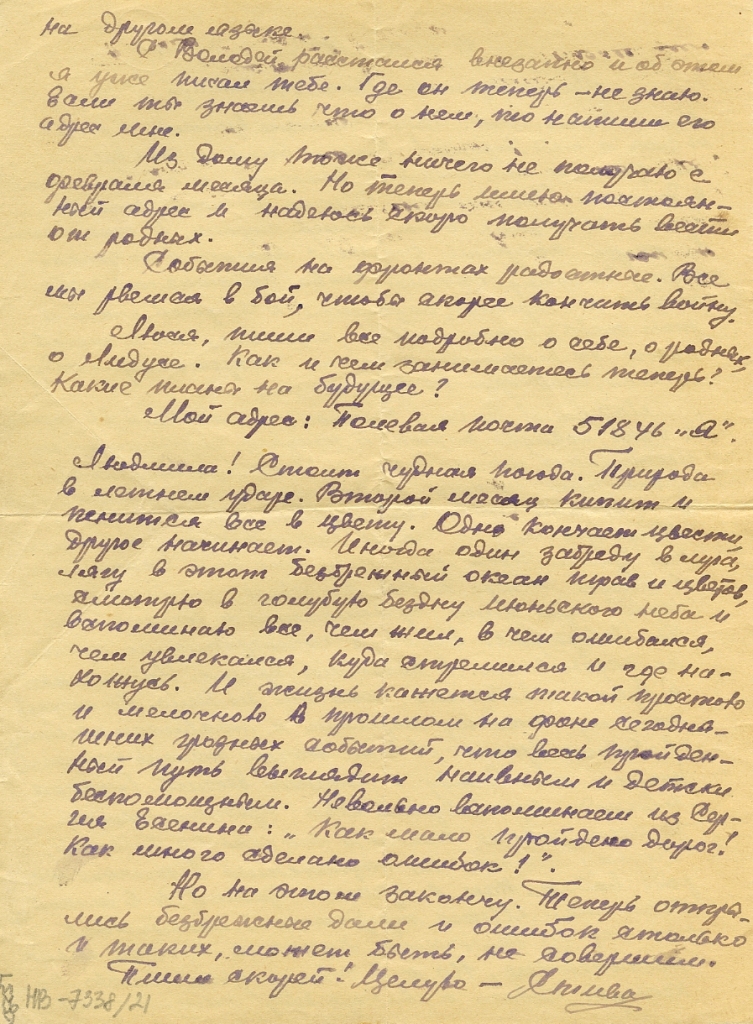 на другом языке.
С Володей расстался внезапно и об этом
я уже писал тебе. Где он теперь – не знаю.
Если ты знаешь что о нем, то напиши его
адрес мне.
Из дому тоже ничего не получаю с
февраля месяца. Но теперь имею постоян-
ный адрес и надеюсь скоро получать вести
от родных.
События на фронтах радостные. Все
мы рвемся в бой, чтобы скорее кончить войну.
Люся, пиши все подробно о себе, о родных
о Лидусе. Как и чем занимаетесь теперь?
Какие планы на будущее?
Мой адрес: Полевая почта 51846 „А".
Людмила! Стоит чудная погода. Природа
в летнем ударе. Второй месяц кипит и
пенится все в цвету. Одно кончает цвести
другое начинает. Иногда один забреду в луга,
лягу в этот безбрежный океан трав и цветов,
смотрю в голубую бездну июньского неба и
вспоминаю все, чем жил, в чем ошибался,
чем увлекался, куда стремился и где на-
хожусь. И жизнь кажется такой простово
и мелочново в прошлом на фоне сегодня-
шних грозных событий, что весь пройден-
ный путь выглядит наивным и детски
беспомощным. Невольно вспоминаем из Сер-
гея Есенина: „Как мало пройдено дорог!
Как много сделано ошибок!".
Но на этом закончу. Теперь откры-
лись безбрежные дали и ошибок столько
и таких, может быть, не совершим.
Пиши скорей! Целую –
НВ-7338/21